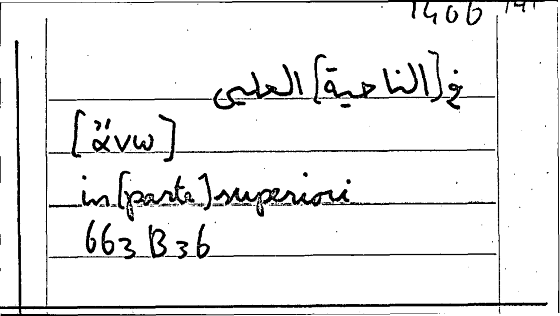 1406
في [الناحية] العليى
[ἄνω]
in [parte] superiori
663 B 36